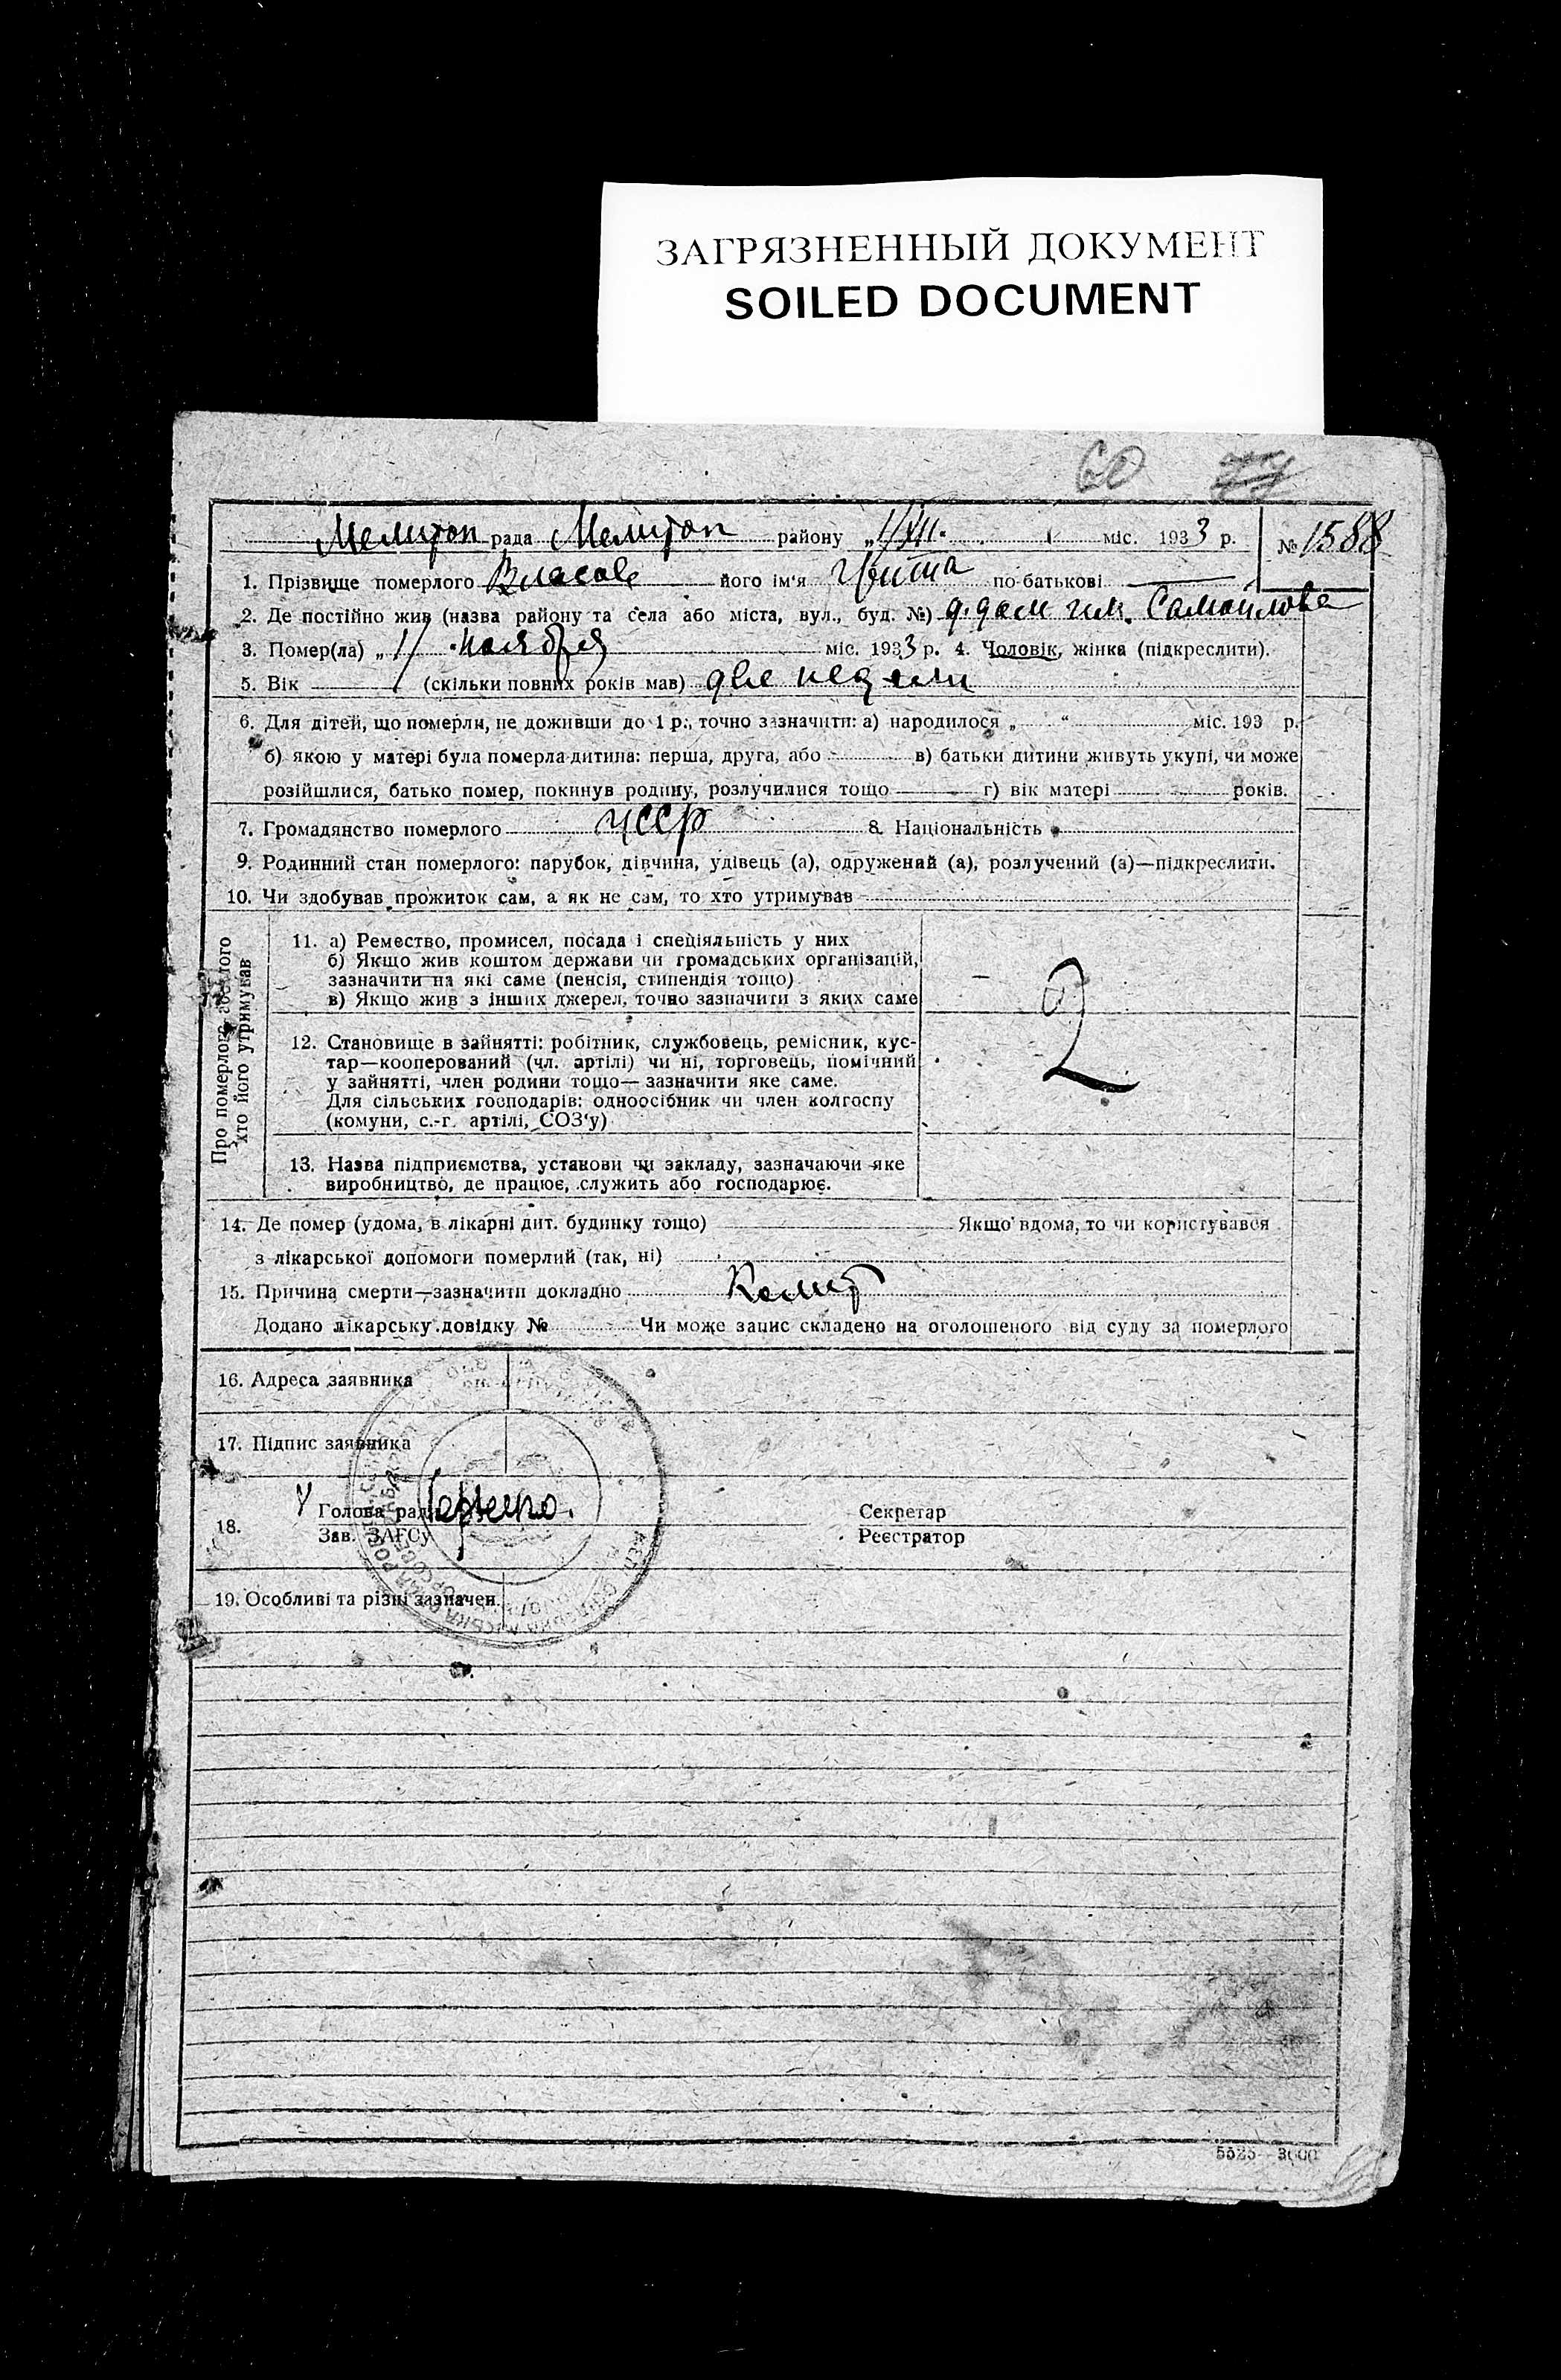 ЗАГРЯЗНЕННЫЙ ДОКУМЕНТ
SOILED DOCUMENT
60
Мелитоп рада Мелитоп району „1/XII. міс. 1933 р. № 1588
1. Прізвище померлого Власов його ім'я по-батькові —
2. Де постійно жив (назва району та села або міста, вул., буд. №) д.дом им. Самойлова
3. Помер(ла) „ 11 ноября міс. 1933 р. 4. Чоловік, жінка (підкреслити).
5. Вік — (скільки повних років мав) две недели
6. Для дітей, що померли, не доживши до 1 р., точно зазначити: а) народилося „ “ міс. 193 р.
б) якою у матері була померла дитина: перша, друга, або в) батьки дитини живуть укупі, чи може
розійшлися, батько помер, покинув родину, розлучилися тощо г) вік матері років.
7. Громадянство померлого УССР 8. Національність
9. Родинний стан померлого: парубок, дівчина, удівець (а), одружений (а), розлучений (а)—підкреслити.
10. Чи здобував прожиток сам, а як не сам, то хто утримував
Про померлого або того
хто його утримував
11. а) Ремество, промисел, посада і спеціяльність у них
б) Якщо жив коштом держави чи громадських організацій,
зазначити на які саме (пенсія, стипендія тощо)
в) Якщо жив з інших джерел, точно зазначити з яких саме
2
12. Становище в зайнятті: робітник, службовець, ремісник, кус-
тар—кооперований (чл. артілі) чи ні, торговець, помічний
у зайнятті, член родини тощо— зазначити яке саме.
Для сільських господарів: одноосібник чи член колгоспу
(комуни, с.-г. артілі, СОЗ'у)
13. Назва підприємства, установи чи закладу, зазначаючи яке
виробництво, де працює, служить або господарює.
14. Де помер (удома, в лікарні дит. будинку тощо) Якщо вдома, то чи користувався
з лікарської допомоги померлий (так, ні)
15. Причина смерти—зазначити докладно Колит
Додано лікарську довідку № Чи може запис складено на оголошеного від суду за померлого
16. Адреса заявника
17. Підпис заявника
18. Голова ради Секретар
Зав. ЗАГСу Реєстратор
19. Особливі та різні зазначен.
5525—3000